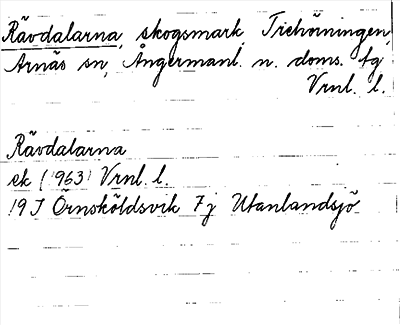 Rävdalarna, skogsmark, Trehörningen,
Arnäs sn, Ångermanl. n. doms. fg
Vrnl. l.
Rävdalarna
ek (1963) Vrnl. l.
19 J Örnsköldsvik 7 j Utanlandsjö